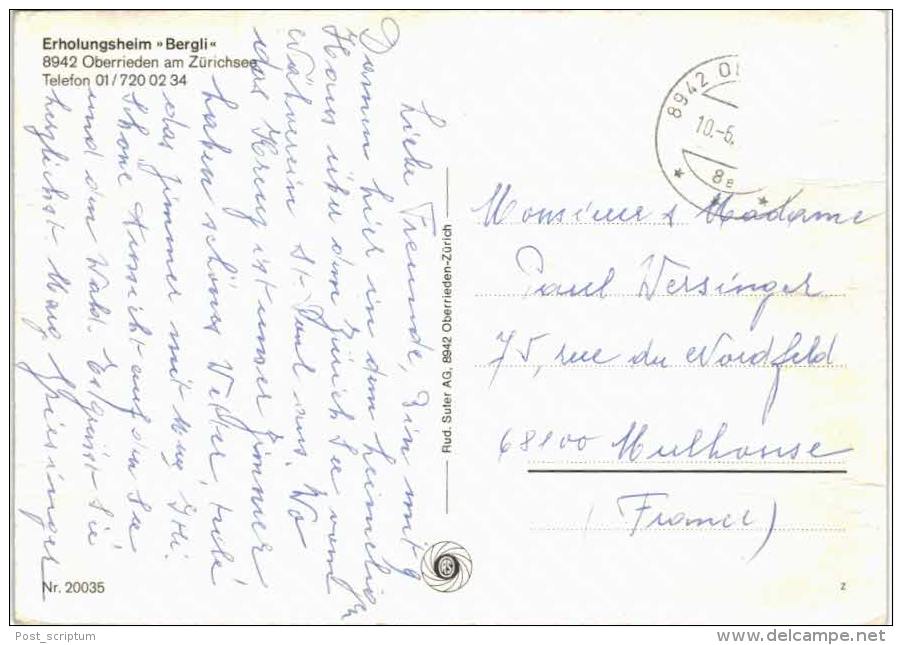 Erholungsheim »Bergli«
8942 Oberrieden am Zürichsee
Telefon 01/720 02 34
Liebe Freunde, Bin mit 9
Damen hier in dem heimelig
Haus über dem Zürich See vom
Wählverein St. Paul aus. Wo
das Kreuz ist unser Zimmer
haben schönes Wetter, teile
das Zimmer mit
schöne Aussicht auf den See
und den Wald. Es grüsst Sie
herzlichst. Marg
Rud. Suter AG, 8942 Oberrieden-Zürich
8942 O
10.-5.
Monsieur & Madame
Paul Wersinger
75, rue du Nordfeld
68100 Mulhouse
(France)
Nr. 20035
z
Post_scriptum
www.delcampe.net